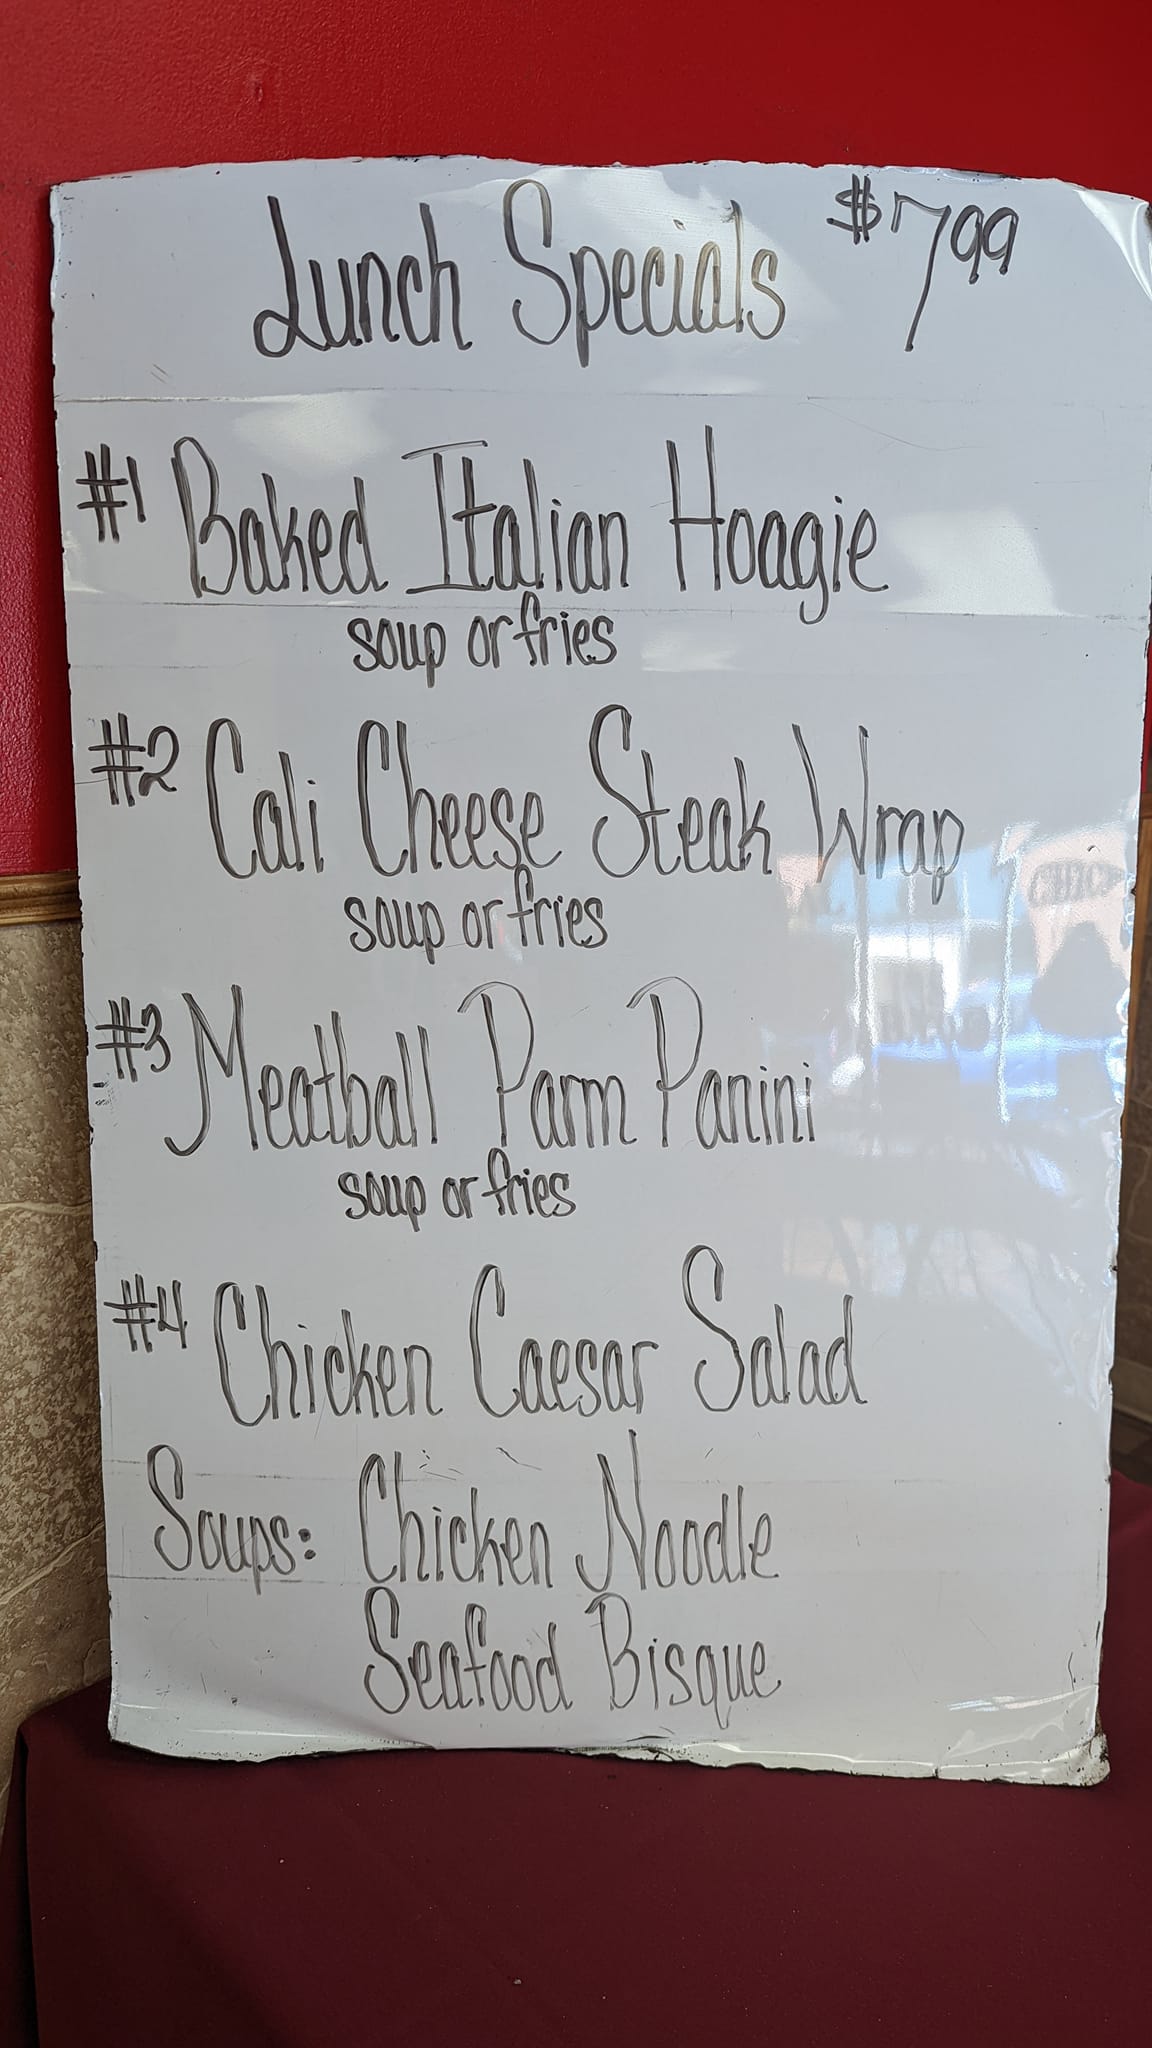 Lunch Specials $7.99
#1 Baked Italian Hoagie
soup or fries
#2 Cali Cheese Steak Wrap
soup or fries
#3 Meatball Parm Panini
soup or fries
#4 Chicken Caesar Salad
Soups: Chicken Noodle
Seafood Bisque